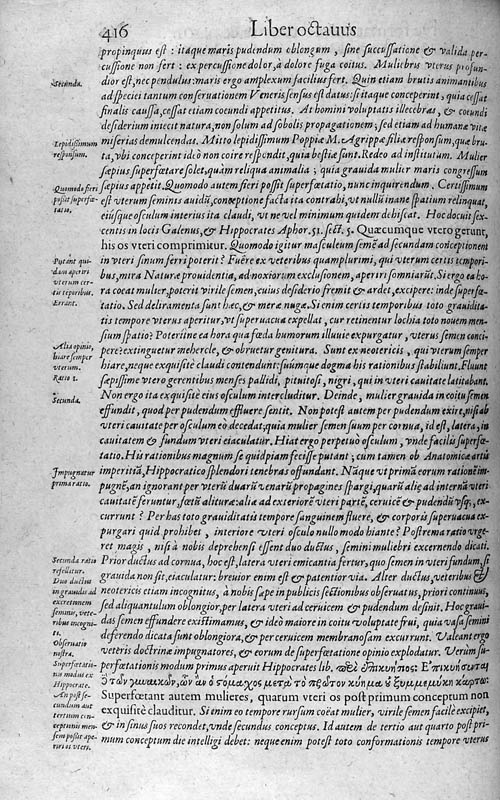 416 Liber octauus
propinquus est : itaque maris pudendum oblongum , sine succussatione & valida per-
cussione non fert : ex percussione dolor, à dolore fuga coitus. Muliebris vterus profun-
dior est, nec pendulus: maris ergo amplexum facilius fert. Quin etiam brutis animantibus
Secunda.
ad speciei tantum conseruationem Veneris sensus est datus: si itaque conceperint, quia cessat
finalis caussa, cessat etiam coeundi appetitus. At homini voluptatis illecebras, & coeundi
desiderium iniecit natura, non solum ad sobolis propagationem, sed etiam ad humanæ vitæ
Lepidissimum
responsum.
miserias demulcendas. Mitto lepidissimum Poppiæ M. Agrippæ filiæ responsum, quæ bru-
ta, vbi conceperint ideò non coire respondit, quia bestiæ sunt. Redeo ad institutum. Mulier
sæpius superfœtare solet, quàm reliqua animalia ; quia grauida mulier maris congressum
Quomodo fieri
possit superfœ-
tatio.
sæpius appetit. Quomodo autem fieri possit superfœtatio, nunc inquirendum. Certissimum
est vterum seminis auidũ, conceptione facta ita contrahi, vt nullũ inane spatium relinquat,
eiúsque osculum interius ita claudi, vt ne vel minimum quidem dehiscat. Hoc docuit sex-
centis in locis Galenus, & Hippocrates Aphor. 51. sect. 5. Quæcumque vtero gerunt,
his os vteri comprimitur. Quomodo igitur masculeum semẽ ad secundam conceptionem
Putant qui-
dam aperiri
vterum cer-
tis temporibus.
Errant.
in vteri sinum ferri poterit? Fuêre ex veteribus quamplurimi, qui vterum certis tempori-
bus, mira Naturæ prouidentia, ad noxiorum exclusionem, aperiri somniarũt. Si ergo ea ho-
ra coeat mulier, poterit virile semen, cuius desiderio fremit & ardet, excipere: inde superfœ-
tatio. Sed deliramenta sunt hæc, & meræ nugæ. Si enim certis temporibus toto grauidita-
tis tempore vterus aperitur, vt superuacua expellat, cur retinentur lochia toto nouem men-
sium spatio? Poterítne ea hora qua fœda humorum illuuie expurgatur , vterus semen conci-
Alia opinio,
hiare semper
vterum.
Ratio 1.
pere? extinguetur mehercle, & obruetur genitura. Sunt ex neotericis , qui vterum semper
hiare, neque exquisitè claudi contendunt: suúmque dogma his rationibus stabiliunt. Fluunt
sæpissime vtero gerentibus menses pallidi, pituitosi, nigri, qui in vteri cauitate latitabant.
Secunda.
Non ergo ita exquisitè eius osculum intercluditur. Deinde, mulier grauida in coitu semen
effundit, quod per pudendum effluere sentit. Non potest autem per pudendum exire, nisi ab
vteri cauitate per osculum eò decedat; quia mulier semen suum per cornua, id est, latera, in
cauitatem & fundum vteri eiaculatur. Hiat ergo perpetuò osculum , vnde facilis superfœ-
tatio. His rationibus magnum se quidpiam fecisse putant ; cum tamen ob Anatomicæ artis
Impugnatur
prima ratio.
imperitiã, Hippocratico splendori tenebras offundant. Nãque vt primã eorum rationẽ im-
pugnẽ, an ignorant per vterũ duariũ venarũ propagines spargi, quarũ aliæ ad internã vteri
cauitatẽ feruntur, fœtũ alituræ: aliæ ad exteriorẽ vteri partẽ, ceruicẽ & pudendũ vsq;, ex-
currunt ? Per has toto grauiditatis tempore sanguinem fluere, & corporis superuacua ex-
purgari quid prohibet , interiore vteri osculo nullo modo hiante? Postrema ratio vrge-
ret magis , nisi à nobis deprehensi essent duo ductus , semini muliebri excernendo dicati.
Secunda ratio
refellitur.
Duo ductus
in grauida ad
excretionem
seminis, vete-
ribus incogni-
ti.
Prior ductus ad cornua, hoc est, latera vteri emicantia fertur, quo semen in vteri fundum, si
grauida non sit, eiaculatur: breuior enim est & patentior via. Alter ductus, veteribus &
neotericis etiam incognitus, à nobis sæpe in publicis sectionibus obseruatus, priori continuus,
sed aliquantulum oblongior, per latera vteri ad ceruicem & pudendum desinit. Hoc graui-
das semen effundere existimamus, & ideò maiore in coitu voluptate frui, quia vasa semini
Obseruatio
nostra.
deferendo dicata sunt oblongiora, & per ceruicem membranosam excurrunt. Valeant ergo
veteris doctrinæ impugnatores, & eorum de superfœtatione opinio explodatur. Verùm su-
Superfœtatio-
nis modus ex
Hippocrate.
perfœtationis modum primus aperuit Hippocrates lib. περὶ ἐπικυήσιος: Ἐπικυΐσκονται
Superfœtant autem mulieres, quarum vteri os post primum conceptum non
An post se-
cundum aut
tertium con-
ceptionis men-
sem possit ape-
riri os vteri.
exquisitè clauditur. Si enim eo tempore rursum coëat mulier, virile semen facilè excipiet,
& in sinus suos recondet, vnde secundus conceptus. Id autem de tertio aut quarto post pri-
mum conceptum die intelligi debet: neque enim potest toto conformationis tempore vterus